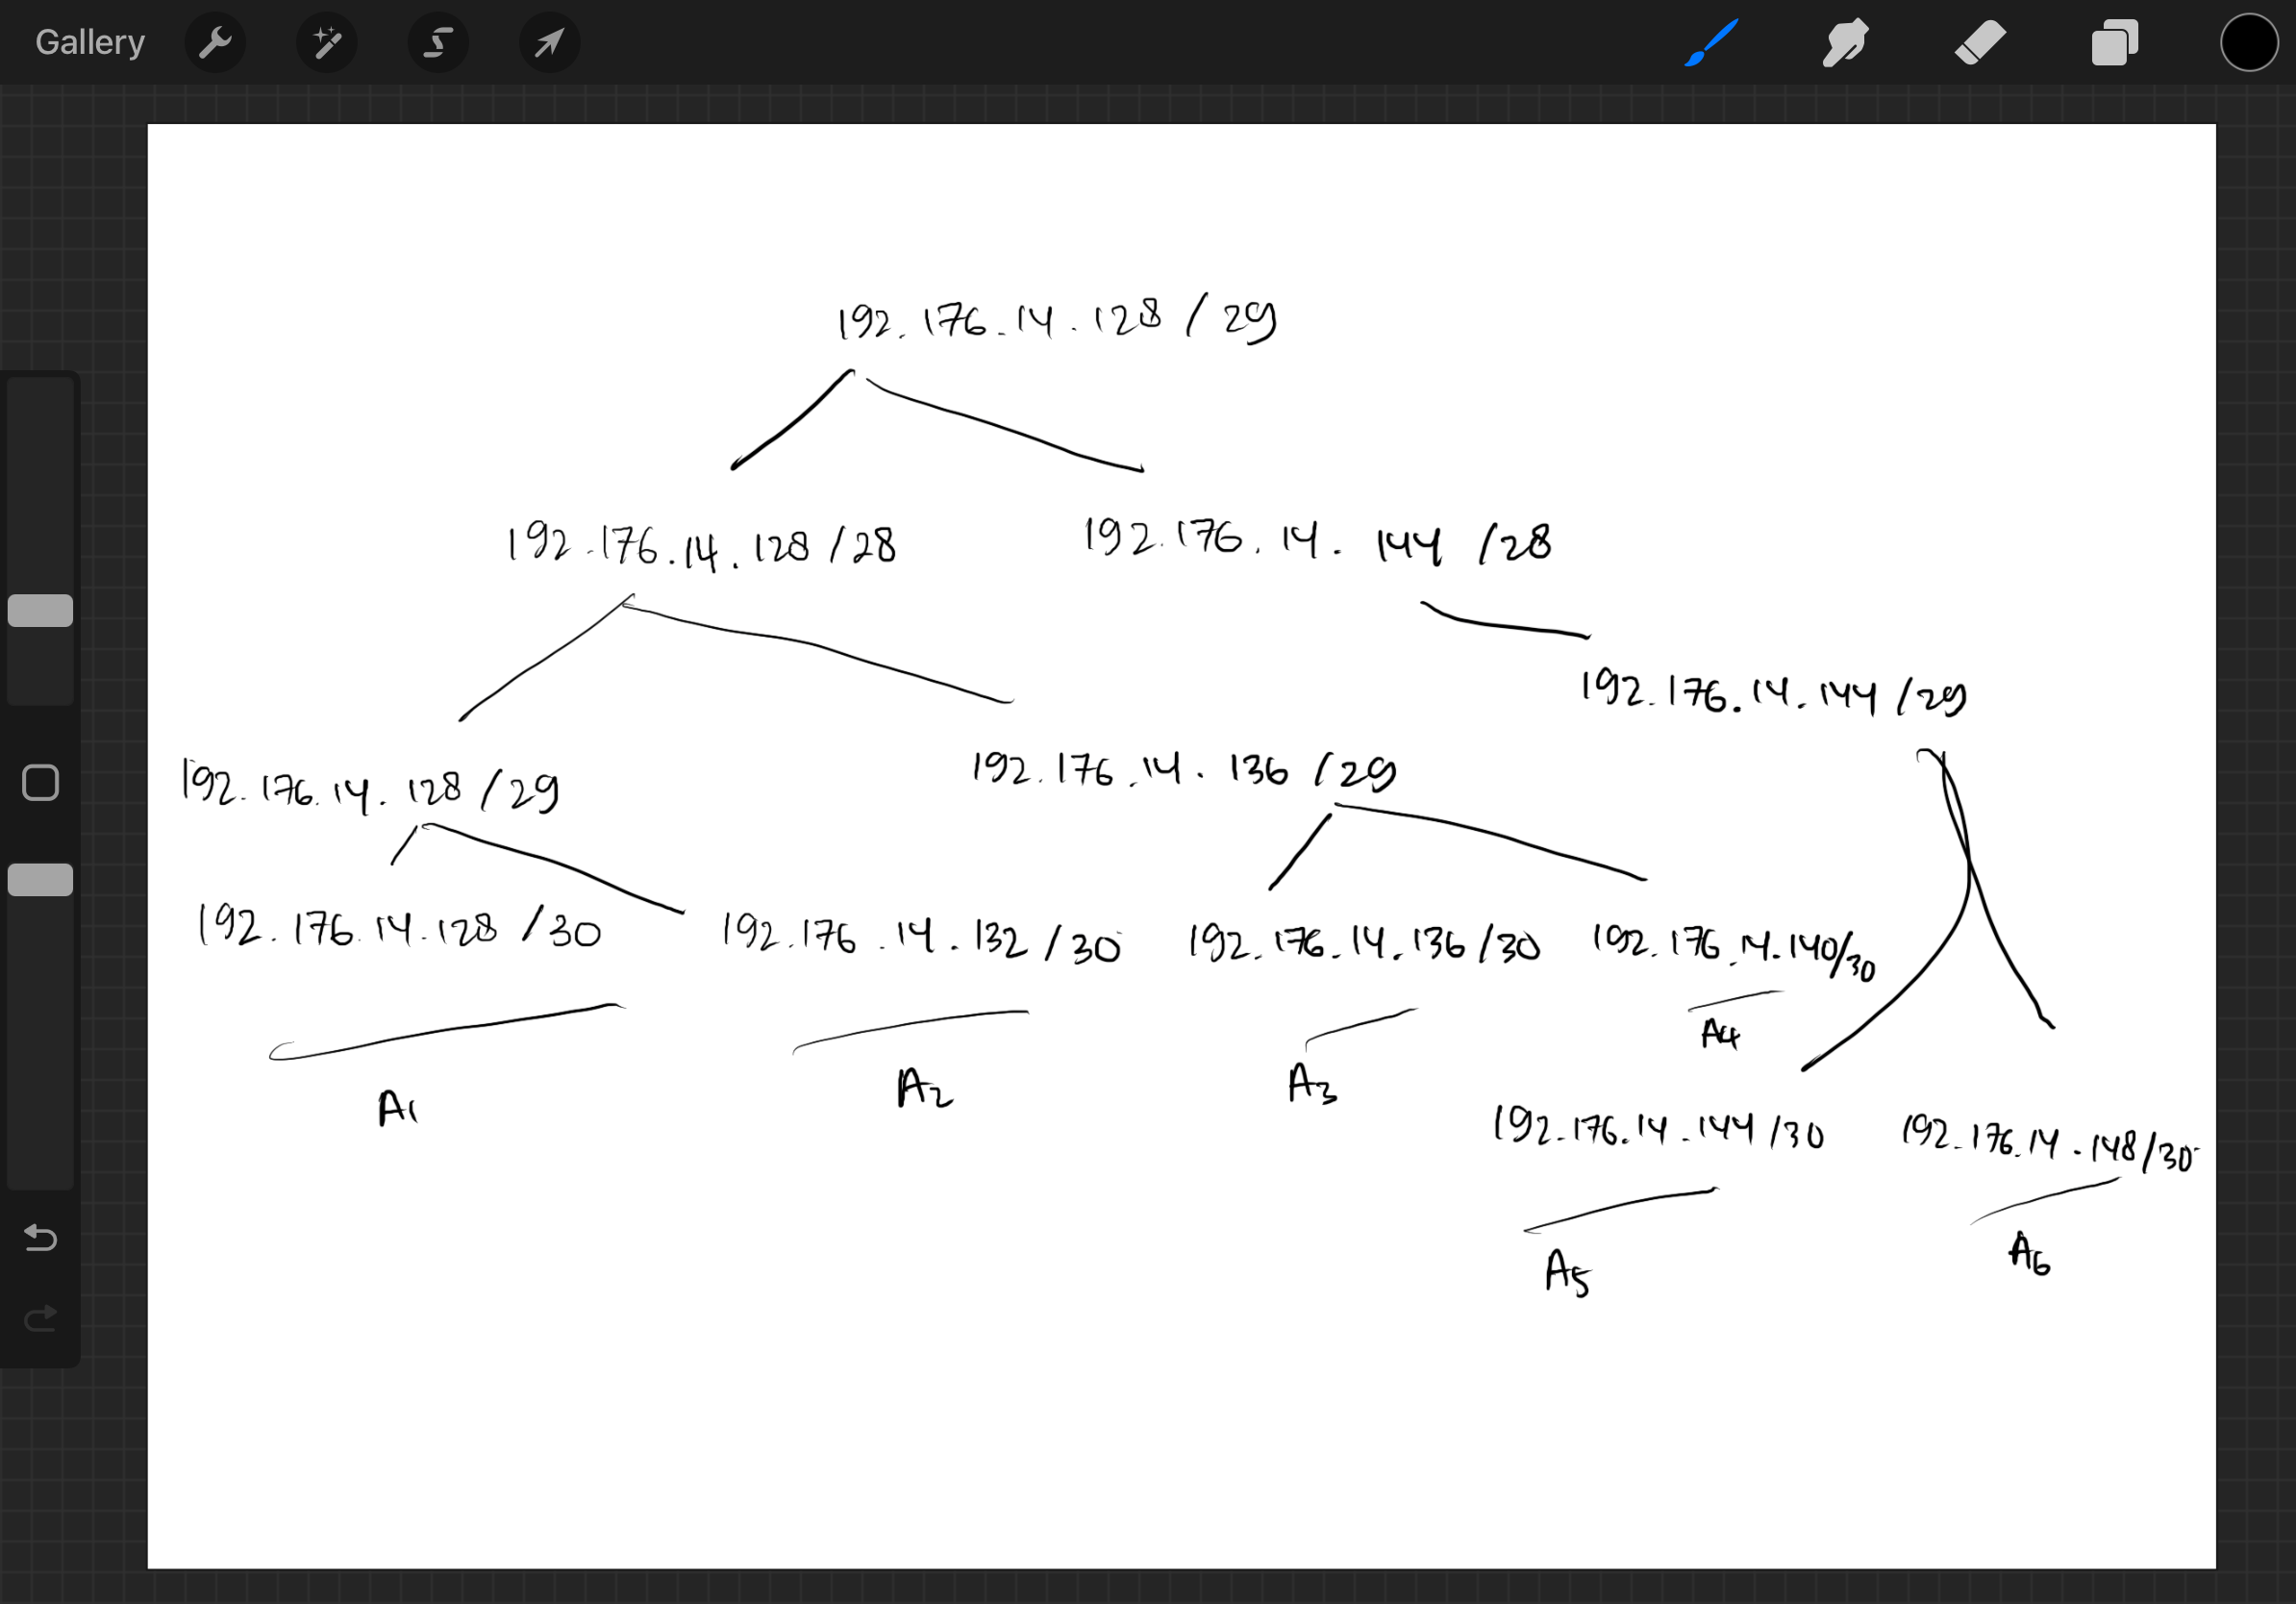 Gallery
192.176.14.128/29
192.176.14.128/28
192.176.14.144/28
192.176.14.144/29
192.176.14.128/29
192.176.14.136/29
192.176.14.128/30
192.176.14.132/30
192.176.14.136/30
192.176.14.140/30
A1
A2
A3
A4
192.176.14.144/30
192.176.14.148/30
A5
A6